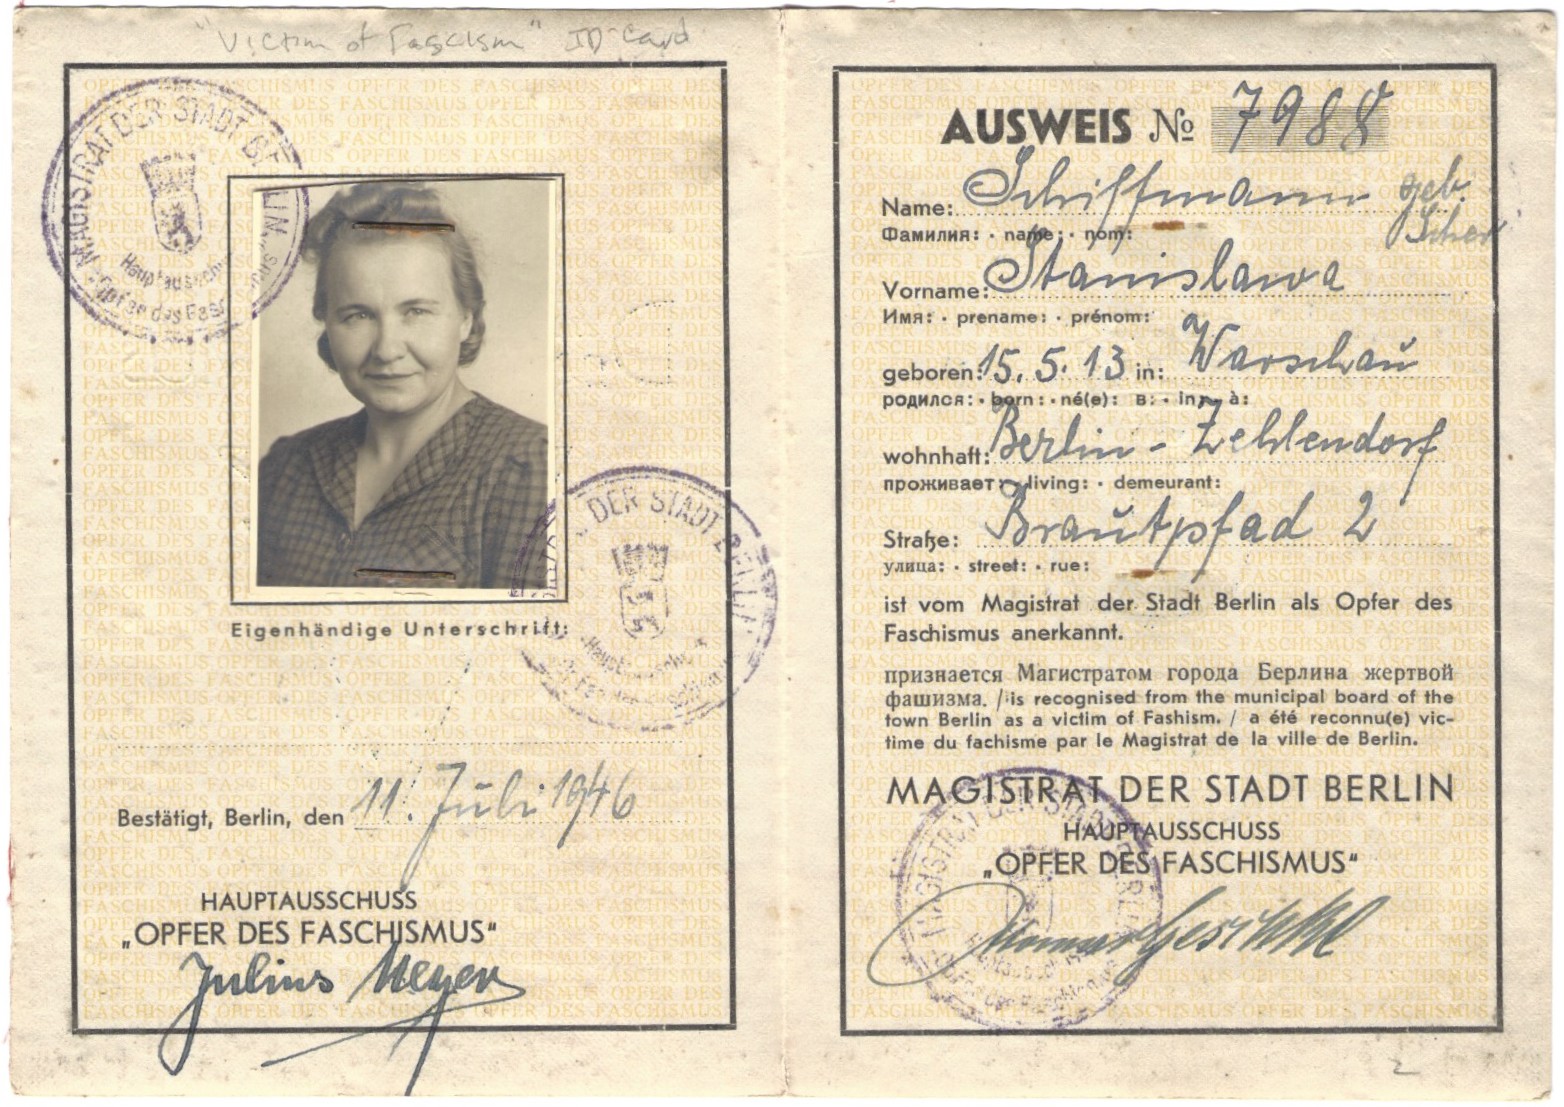 "Victim of Fascism" ID Card
MAGISTRAT DER STADT BERLIN
Hauptausschuss
Opfer des Faschismus
Eigenhändige Unterschrift:
Bestätigt, Berlin, den 11. Juli 1946
HAUPTAUSSCHUSS
„OPFER DES FASCHISMUS"
Julius Meyer
AUSWEIS No 7988
Name: Schiffmann geb.
Фамилия: · name: · nom:
Vorname: Stanislawa
Имя: · prename: · prénom:
geboren: 15. 5. 13 in: Warschau
родился: · born: · né(e): в: · in: · à:
wohnhaft: Berlin - Zehlendorf
проживает: · living: · demeurant:
Straße: Brautpfad 2
улица: · street: · rue:
ist vom Magistrat der Stadt Berlin als Opfer des
Faschismus anerkannt.
признается Магистратом города Берлина жертвой
фашизма. / is recognised from the municipal board of the
town Berlin as a victim of Fashism. / a été reconnu(e) vic-
time du fachisme par le Magistrat de la ville de Berlin.
MAGISTRAT DER STADT BERLIN
HAUPTAUSSCHUSS
„OPFER DES FASCHISMUS"
2